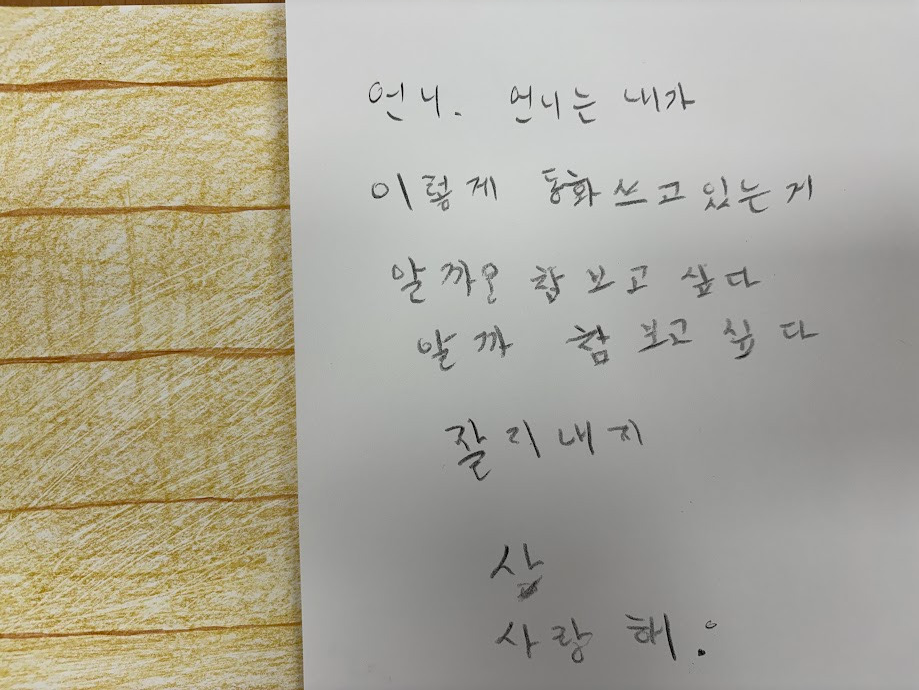 언니. 언니는 내가
이렇게 동화 쓰고 있는 게
알까요 참 보고 싶다
알까 참 보고 싶다
잘 지내지
삼
사랑 해.